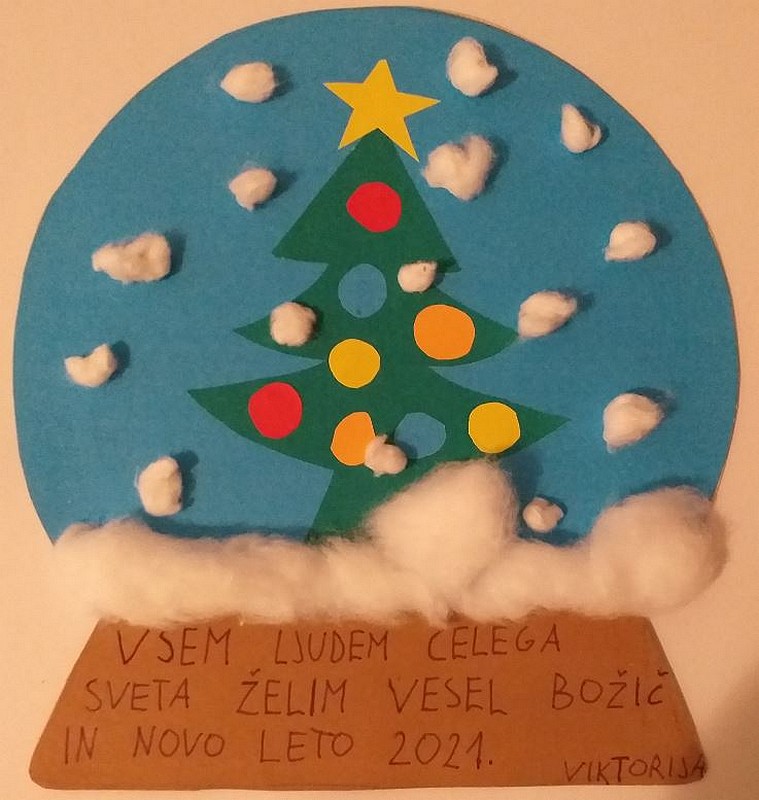 VSEM LJUDEM CELEGA
SVETA ŽELIM VESEL BOŽIČ
IN NOVO LETO 2021.
VIKTORIJA